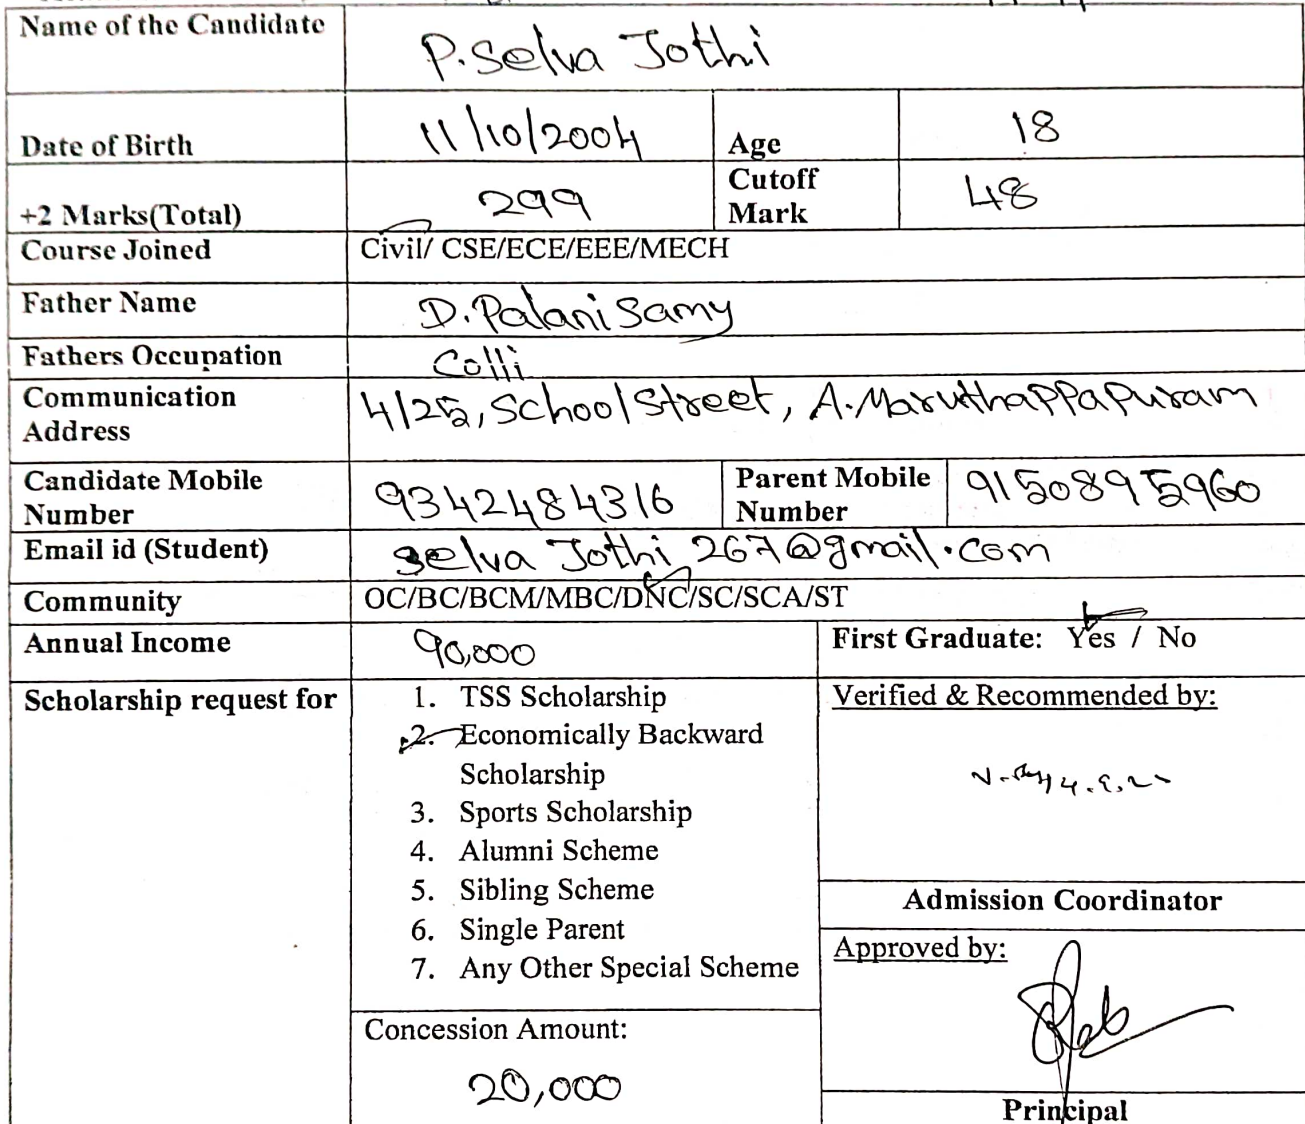 Name of the Candidate P. Selva Jothi
Date of Birth 11/10/2004 Age 18
+2 Marks(Total) 299 Cutoff Mark 48
Course Joined Civil/ CSE/ECE/EEE/MECH
Father Name D. Palani Samy
Fathers Occupation Colli
Communication Address 4/25, School Street, A. Maruthappapuram
Candidate Mobile Number 9342484316 Parent Mobile Number 915089 5960
Email id (Student) selva Jothi 267@gmail.com
Community OC/BC/BCM/MBC/DNC/SC/SCA/ST
Annual Income 90,000 First Graduate: Yes / No
Scholarship request for
1. TSS Scholarship
2. Economically Backward
Scholarship
3. Sports Scholarship
4. Alumni Scheme
5. Sibling Scheme
6. Single Parent
7. Any Other Special Scheme
Concession Amount:
20,000
Verified & Recommended by:
Admission Coordinator
Approved by:
Principal